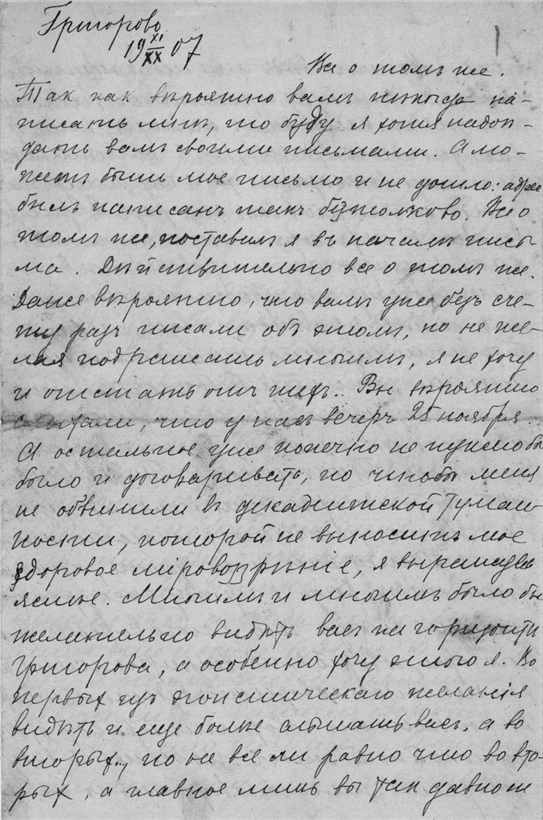 Григорово.
19 XI/XX 07
1
Все о томъ же.
Такъ какъ вѣроятно вамъ некогда на-
писать мнѣ, то буду я хотя надоѣ-
дать вамъ своими письмами. А мо-
жетъ быть мое письмо и не дошло: адресъ
былъ написанъ такъ безтолково. Все о
томъ же, поставилъ я въ началѣ пись
ма. Дѣйствительно все о томъ же.
Даже вѣроятно, что вамъ уже безъ сче-
ту разъ писали объ этомъ, но не же-
лая подражать многимъ, я не хочу
и отстать отъ нихъ. Вы вѣроятно
слыхали, что у насъ вечеръ 25 ноября..
А остальное уже конечно не нужно бы
было и договаривать, но чтобы меня
не обвинили въ декадентской туман
ности, которой не выноситъ мое
здоровое міровоззрѣніе, я выражусь
яснѣе. Многимъ и многимъ было бы
желательно видѣть васъ на горизонтѣ
Григорова, а особенно хочу этого я. Во
первыхъ изъ эгоистическаго желанія
видѣть и еще болѣе слышать васъ, а во
вторыхъ.., но не все ли равно что во вто-
рыхъ, а главное лишь вы такъ давно не